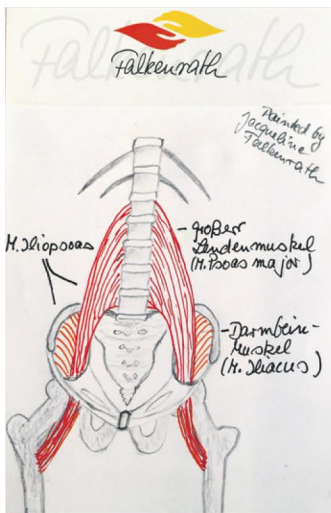 Falkenrath
Falkenrath
Painted by
Jacqueline
Falkenrath
M. Iliopsoas
großer
Lendenmuskel
(M. Psoas major)
Darmbein-
Muskel
(M. Iliacus)